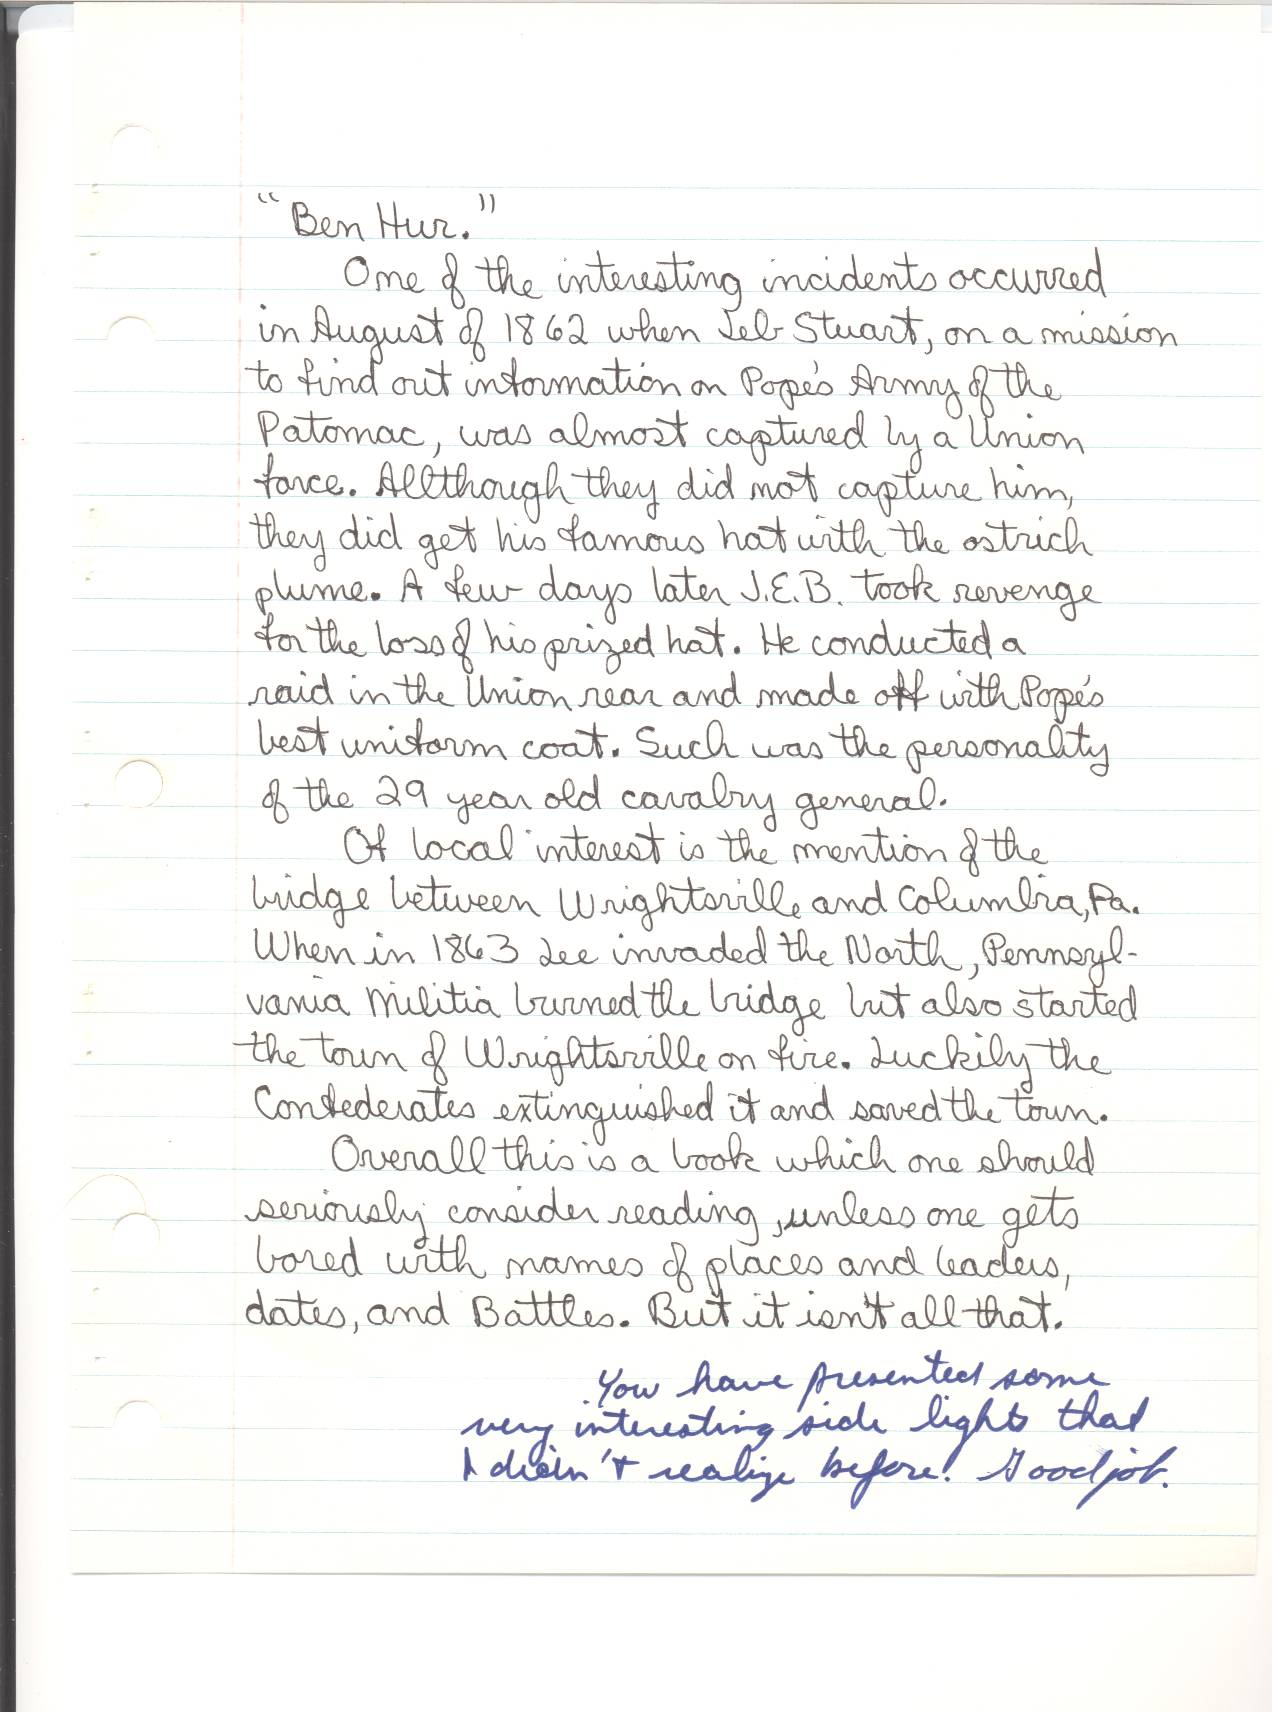 "Ben Hur."
One of the interesting incidents occurred
in August of 1862 when Jeb Stuart, on a mission
to find out information on Pope's Army of the
Patomac, was almost captured by a Union
force. Allthough they did not capture him,
they did get his famous hat with the ostrich
plume. A few days later J.E.B. took revenge
for the loss of his prized hat. He conducted a
raid in the Union rear and made off with Pope's
best uniform coat. Such was the personality
of the 29 year old cavalry general.
Of local interest is the mention of the
bridge between Wrightsville and Columbia, Pa.
When in 1863 Lee invaded the North, Pennsyl-
vania Militia burned the bridge but also started
the town of Wrightsville on fire. Luckily the
Confederates extinguished it and saved the town.
Overall this is a book which one should
seriously consider reading, unless one gets
bored with names of places and leaders,
dates, and Battles. But it isn't all that.
You have presented some
very interesting side lights that
I didn't realize before! Good job.